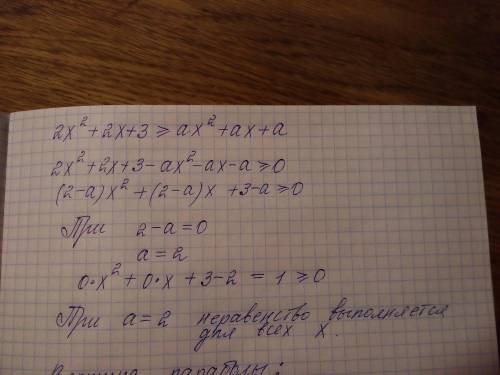 2x² + 2x + 3 ⩾ ax² + ax + a
2x² + 2x + 3 - ax² - ax - a ⩾ 0
(2-a)x² + (2-a)x + 3-a ⩾ 0
При 2-a=0
a=2
0·x² + 0·x + 3-2 = 1 ⩾ 0
При a=2 неравенство выполняется
для всех x.
параболы: